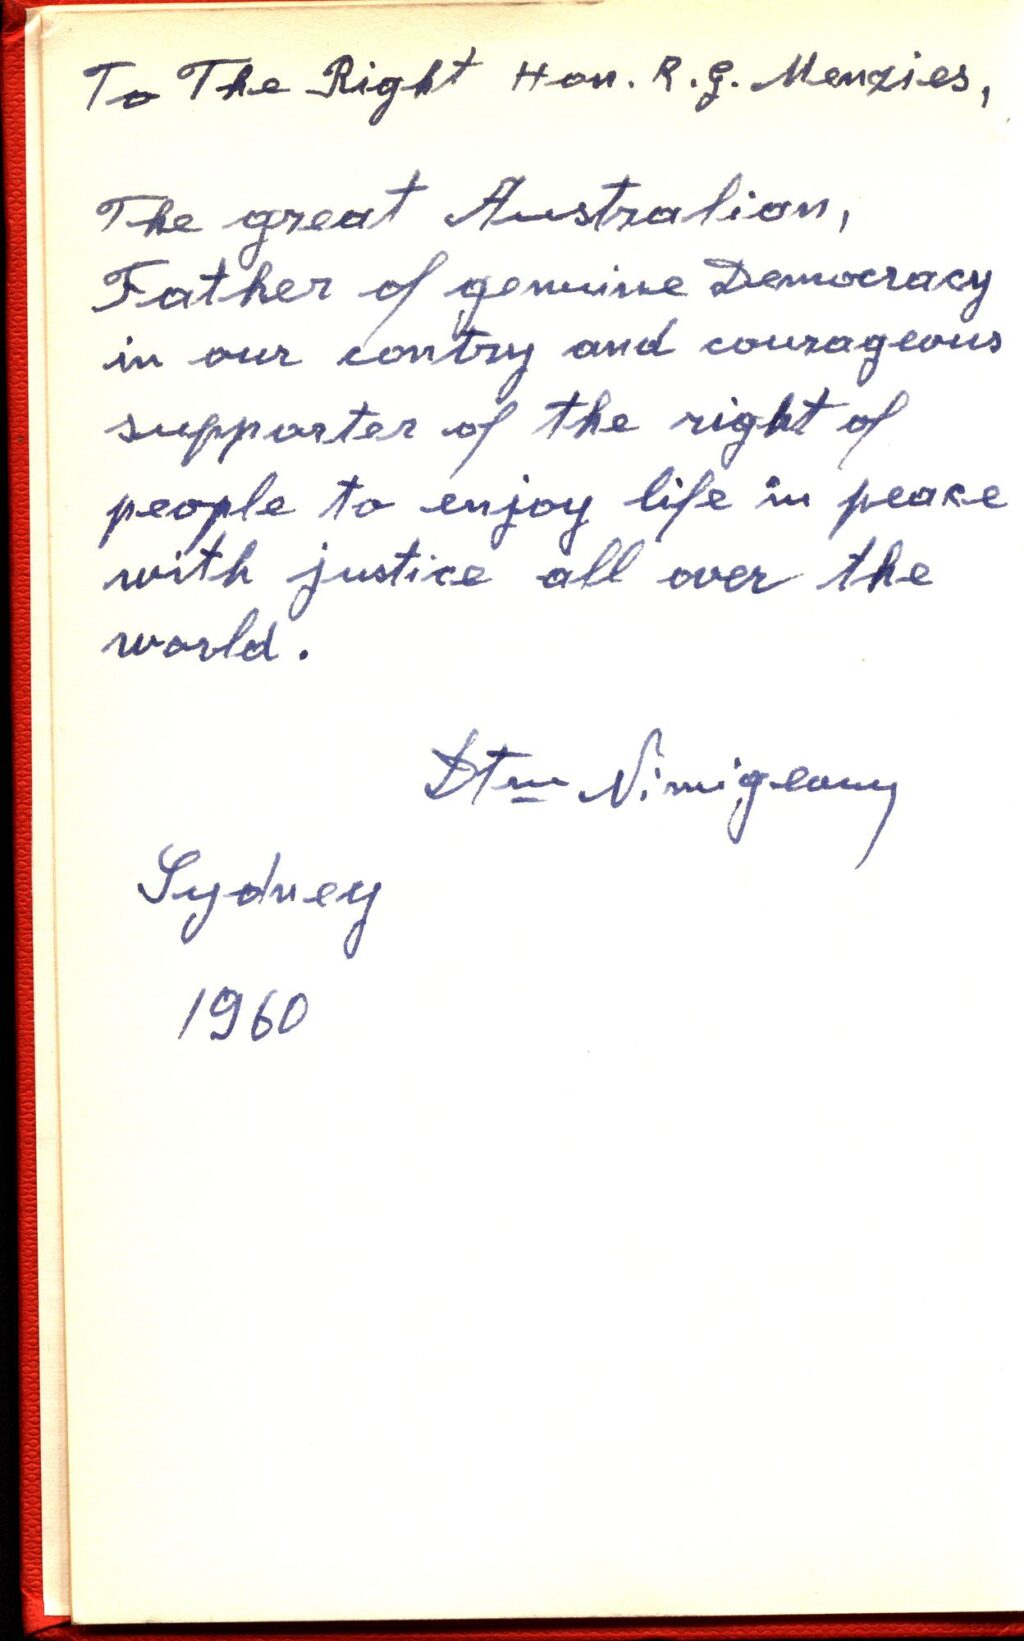 To The Right Hon. R. G. Menzies,
The great Australian,
Father of genuine Democracy
in our contry and courageous
supporter of the right of
people to enjoy life in peace
with justice all over the
world.
Nimigeany
Sydney
1960